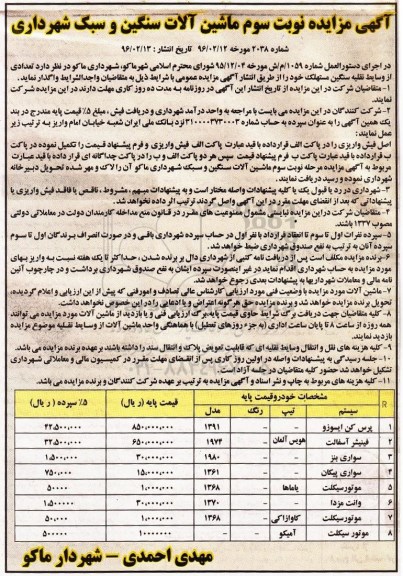 آگهی مزایده نوبت سوم ماشین آلات سنگین و سبک شهرداری
شماره ۲۰۳۸ مورخه ۹۶/۰۲/۱۲ تاریخ انتشار : ۹۶/۰۲/۱۳
در اجرای دستورالعمل شماره ۱۰۵۹/م/ش مورخه ۹۵/۱۲/۰۲ شورای محترم اسلامی شهرماکو، شهرداری ماکو در نظر دارد تعدادی
از وسایط نقلیه سنگین مستهلک خود را از طریق انتشار آگهی مزایده عمومی با شرایط ذیل به متقاضیان واجدالشرایط واگذار نماید.
۱- متقاضیان شرکت در این مزایده از تاریخ انتشار این آگهی در روزنامه به مدت ده روز کاری مهلت دارند در این مزایده شرکت
نمایند.
۲- شرکت کنندگان در این مزایده می بایست با مراجعه به واحد درآمد شهرداری و دریافت فیش ، مبلغ ۵٪ قیمت پایه مندرج در بند
یک همین آگهی را به عنوان سپرده به حساب شماره ۳۱۰۰۰۰۳۷۳۰۰۰۳ نزد بانک ملی ایران شعبه خیابان امام واریز به ترتیب زیر
عمل نمایند:
اصل فیش واریزی را در پاکت الف قرارداده با قید عبارت پاکت الف فیش واریزی و فرم پیشنهاد قیمت را تکمیل نموده در پاکت
ب قرارداده با قید عبارت پاکت ب فرم پیشنهاد قیمت سپس هر دو پاکت الف و ب را در پاکت جداگانه ای قرار داده با قید عبارت
مربوط به آگهی مزایده مرحله نوبت سوم ماشین آلات سنگین و سبک شهرداری ماکو آن را لاک و مهر شده تحویل دبیرخانه
شهرداری نموده و رسید دریافت نمایند.
۳- شهرداری در رد یا قبول یک یا کلیه پیشنهادات واصله مختار است و به پیشنهادات مبهم ، مشروط ، ناقص یا فاقد فیش واریزی یا
پیشنهاداتی که بعد از انقضای مهلت مقرر در این آگهی واصل گردند ترتیب اثر داده نخواهد شد.
۴- متقاضیان شرکت در این مزایده نبایستی مشمول ممنوعیت های مقرر در قانون منع مداخله کارمندان دولت در معاملاتی دولتی
مصوب ۱۳۳۷ باشند.
۵- سپرده نفرات اول تا سوم تا انعقاد قرارداد با نفر اول در حساب سپرده شهرداری باقی و در صورت انصراف برندگان اول تا سوم
سپرده آنان به ترتیب به نفع صندوق شهرداری ضبط خواهد شد.
۶- برنده مزایده مکلف است پس از دریافت نامه کتبی از شهرداری دال بر برنده شدن ، حداکثر تا یک هفته نسبت به واریز بهای
مورد مزایده به حساب شهرداری اقدام نماید در غیر اینصورت سپرده ایشان به نفع صندوق شهرداری برداشت و در چارچوب آئین
نامه مالی و معاملات شهرداریها به پیشنهادات بعدی رجوع خواهد شد.
۷- ماشین آلات مورد مزایده با وضعیت فنی مورد ارزیابی کارشناس عالی تصادف و امور فنی که پیش از این ارزیابی و اعلام گردیده ،
تحویل برنده مزایده خواهد شد و برنده مزایده حق هرگونه اعتراض و یا ادعایی را در این خصوص نخواهد داشت.
۸- کلیه متقاضیان جهت دریافت برگ شرایط حاوی قیمت پایه ، برگ ارزیابی فنی و یا بازدید از ماشین آلات مورد مزایده می توانند
همه روزه از ساعت ۸ تا پایان ساعت اداری (به جزء روزهای تعطیل) با هماهنگی واحد ماشین آلات از وسایط نقلیه موضوع مزایده
بازدید نمایند.
۹- کلیه هزینه های نقل و انتقال وسایط نقلیه ای که قابلیت تعویض پلاک و انتقال سند را داشته باشند برعهده برنده مزایده می باشد.
۱۰- جلسه رسیدگی به پیشنهادات واصله در اولین روز کاری پس از انقضای مهلت مقرر در کمیسیون مالی و معاملاتی شهرداری
تشکیل خواهد شد حضور کلیه متقاضیان در جلسه آزاد است.
۱۱- کلیه هزینه های مربوط به چاپ و نشر اسناد و آگهی مزایده به ترتیب بر عهده شرکت کنندگان و برنده مزایده می باشد.
R مشخصات خودرو قیمت پایه قیمت پایه (ریال) ۵٪ سپرده (ریال)
سیستم تیپ رنگ مدل
۱ پرس کن ایسوزو - - ۱۳۹۱ ۸۵۰,۰۰۰,۰۰۰ ۴۲,۵۰۰,۰۰۰
۲ فینیشر آسفالت هویس آلمان - ۱۹۷۴ ۶۵۰,۰۰۰,۰۰۰ ۳۲,۵۰۰,۰۰۰
۳ سواری بنز - - ۱۹۸۰ ۳۰,۰۰۰,۰۰۰ ۱,۵۰۰,۰۰۰
۴ سواری پیکان - - ۱۳۶۱ ۱۵,۰۰۰,۰۰۰ ۷۵۰,۰۰۰
۵ موتورسیکلت یاماها - ۱۳۶۸ ۱,۰۰۰,۰۰۰ ۵۰۰۰۰
۶ وانت مزدا - - ۱۳۷۰ ۳۰,۰۰۰,۰۰۰ ۱,۵۰۰۰۰۰
۷ موتورسیکلت کاوازاکی - ۱۳۶۸ ۱,۰۰۰,۰۰۰ ۵۰,۰۰۰
۸ موتور سیکلت آمیکو - - ۱۰۰۰۰۰۰۰ ۵۰۰۰۰۰
مهدی احمدی - شهردار ماکو